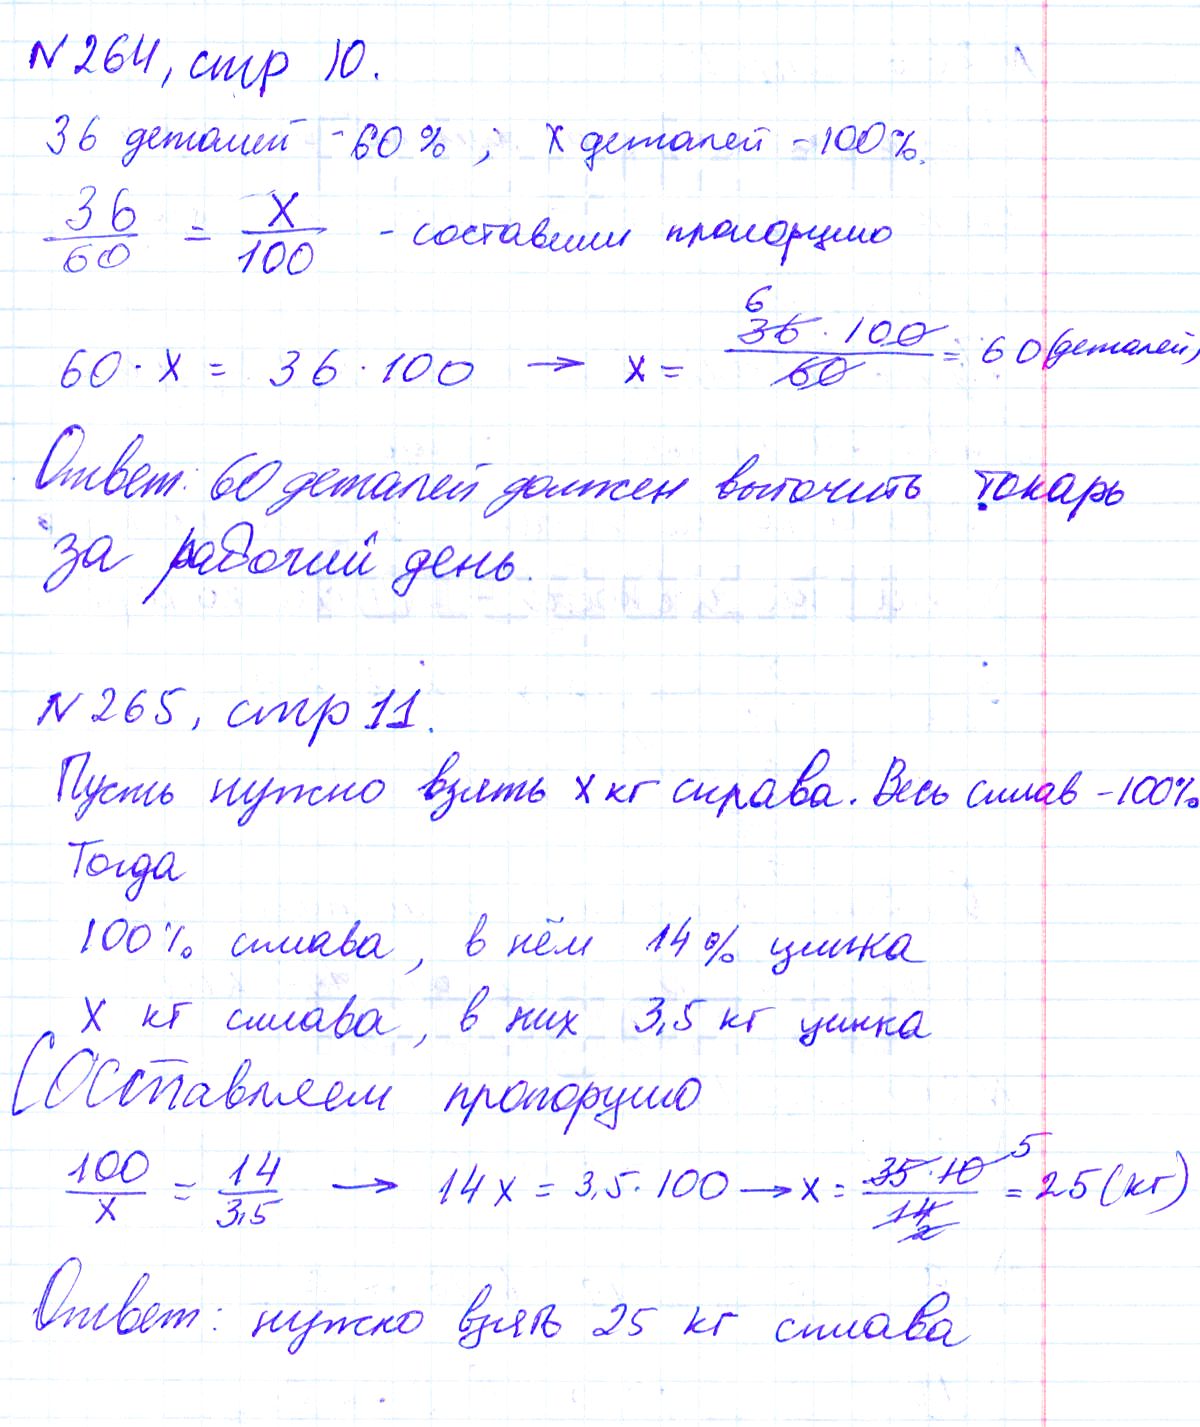 N 264, стр 10.
36 деталей - 60% ; x деталей - 100%.
36/60 = x/100 - составим пропорцию
60 · x = 36 · 100 → x = 36 · 100 / 60 = 60 (деталей)
6
Ответ: 60 деталей должен выточить токарь
за рабочий день.
N 265, стр 11.
Пусть нужно взять x кг сплава. Весь сплав - 100%
Тогда
100% сплава, в нём 14% цинка
x кг сплава, в них 3,5 кг цинка
Составляем пропорцию
100/x = 14/3,5 → 14x = 3,5 · 100 → x = 35 · 10 / 14 = 25 (кг)
5
2
Ответ: нужно взять 25 кг сплава